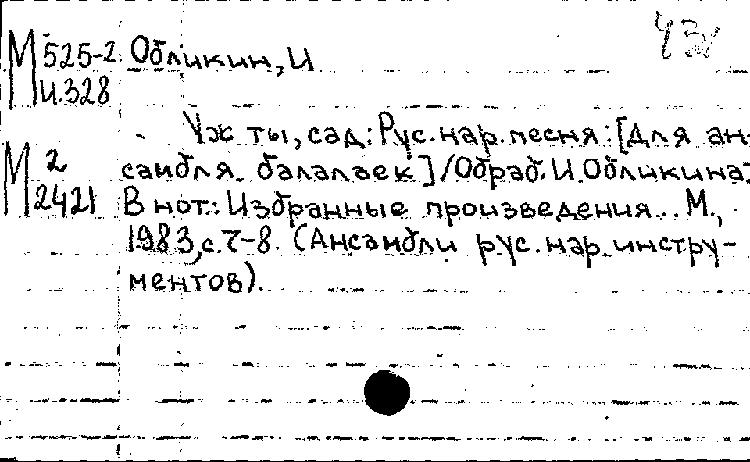 М 525-2 Обликин, И
и.328
Уж ты, сад: Рус. нар. песня: [Для ан-
М 2 самбля балалаек] / Обраб. И. Обликина.
2421 В нот.: Избранные произведения... М.,
1983, с. 7-8. (Ансамбли рус. нар. инстру-
ментов).